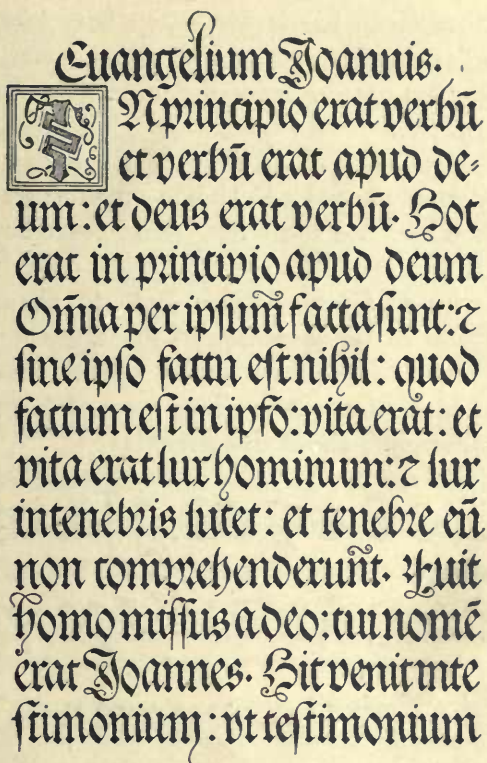 Euangelium Joannis.
IN principio erat verbū
et verbū erat apud de⸗
um : et deus erat verbū. Hoc
erat in principio apud deum
Om̄ia per ipsum̄ facta sunt : ⁊
sine ipso factū est nihil : quod
factum est in ipso : vita erat : et
vita erat lux hominum : ⁊ lux
in tenebris lucet : et tenebre eū
non comprehenderun̄t. Fuit
homo missus a deo : cui nomē
erat Joannes. Hic venit in te
stimonium : vt testimonium